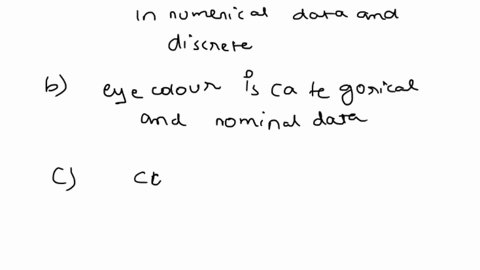 in numerical data and
discrete
b) eye colour is categorical
and nominal data
c) ct